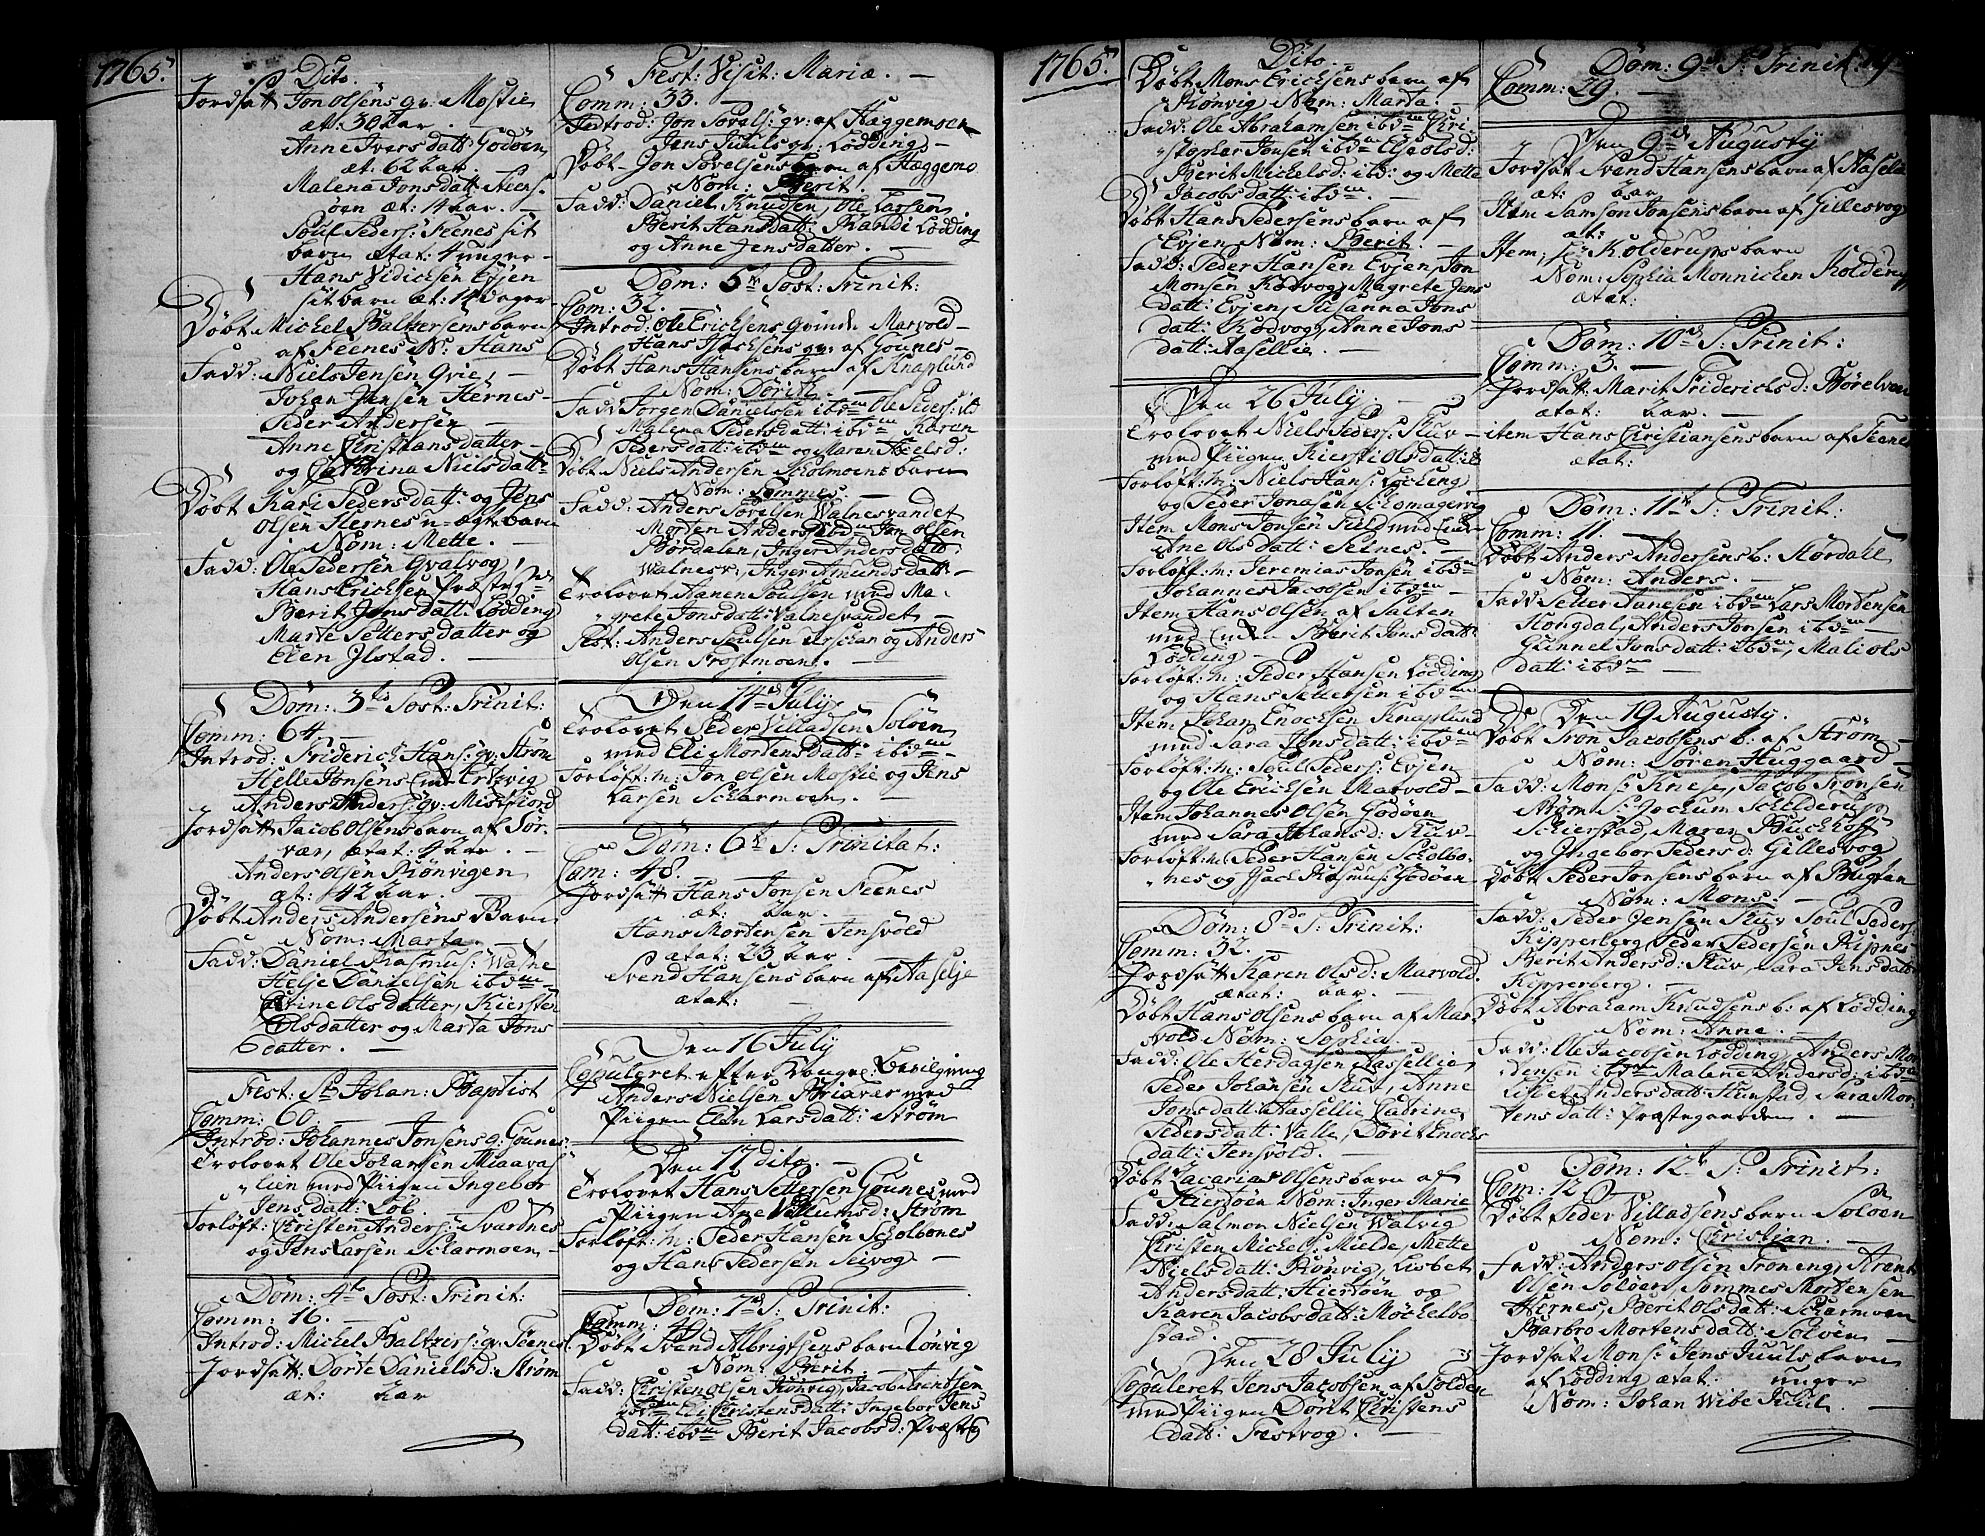 1765.
Dito.
Jordsatt Jon Olsens qv. Mostie
æt: 30 aar. —
Anne Iversdatt: Godöen
æt: 62 aar
Malena Jonsdatt: Steens-
öen æt: 14 aar. —
Poul Peders: Feenes sit
barn ætat: 4 unger —
Hans Evjen
sit barn æt: 14 dager
Döbt Michel Baltzersens barn
af Feenes N: Hans
Fadd: Niels Jensen Qvie,
Johan Jensen Hernes
Peder Andersen —
Anne Christiansdatter —
og Cathrina Nielsdatt:
Döbt Kari Pedersdatt: og Jens
Olsen Hernes u-ægte barn
Nom: Mette. —
Fadd: Ole Pedersen Qvalvog,
Hans Erichsen Præsteg:
Berit Jonsdatt: Lödding
Marte Pettersdatter og
Elen Ilstad. —
Dom: 3tia Post: Trinit:
Comm: 64. —
Introd: Friderich Hans: qv: Ström
Helle Jonsens
Anders Anders: qv: Mistfiord
Jordsatt Jacob Olsens barn af Sör-
vær, ætat: 4 aar. —
Anders Olsen Rönvigen
æt: 42 aar.
Döbt Anders Andersens Barn
Nom: Marta —
Fadd: Daniel Rasmus: Walne
Helje Danielsen ibdm
Olsdatter, Kiersten
Olsdatter og Marta Jons
datter. —
Fest: St Johan: Baptist
Comm: 60. —
Introd: Johannes Jonsens q: Gounes
Trolovet Ole Johansen Miaavas-
lien med Piigen Ingebor
Jensdatt: Löb.
Forlöft: Christen Anders: Svartnes
og Jens Larsen Scharmoen —
Dom: 4to Post: Trinit:
Comm: 16. —
Introd: Michel Baltzers: qv: Feenes.
Jordsatt: Dorte Daniels d: Ström
æt: aar
Fest: Visit: Mariæ. —
Comm: 33. —
Introd: Jon Povels: qv: af Hæggemoen
Jens Juuls qv: Lödding —
Döbt Jon Povelsens barn af Hæggemo
Nom: Berit —
Fadd: Daniel Knudsen, Ole Larsen
Berit Hansdatt: Randi Lödding
og Anne Jensdatter. —
Dom: 5te Post: Trinit:
Com: 32. —
Introd: Ole Erichsens qvinde Marvold —
Hans qv: af Gounes —
Döbt Hans Hansens barn af Knaplund
Nom: Dorite —
Fadd: Jörgen Danielsen ibdm Ole Peders: ib
Malena Pedersdatt: ibdm Karen
Pedersdatt: ibdm og Maren Axelsd:
Döbt Niels Andersen Scholmoens barn
Nom: Tommes. —
Fadd: Anders Povelsen Walnesvandet
Morten Anders: ibd: Jon Olsen
Bördalen, Inger Andersdatt:
Walnesv: Inger Amundsdatt: —
Trolovet Hanen Poulsen med Ma-
grete Jonsdatt: Valnesvandet
Test: Anders Poulsen og Anders
Olsen Frostmoen. —
Den 14d July
Trolovet Peder Villadsen Solöen
med Eli Mortensdatt: ibdm —
Forlöft: m: Jon Olsen Mostie og Jens
Larsen Scharmoen. —
Dom: 6te P: Trinitat:
Com: 48. —
Jordsatt Hans Jonsen Feenes
æt: aar.
Hans Mortensen Jensvold
ætat: 23 aar. —
Svend Hansens barn af Aaselje
ætat: —
Den 16 July
Copuleret efter Kongel: Bevilgning
Anders Nielsen Brixvær med
Piigen Elen Larsdatt: Ström
Den 17 dito. —
Trolovet Hans Pettersen Gounes med
Piigen Ane Villumsd: Ström
Forlöft: m: Peder Hansen Scholbones
og Hans Pedersen Seivog —
Dom: 7me P: Trinit:
Comm: 49. —
Döbt Svend Albrigtsens barn Rönvig
Nom: Berit
Fadd: Christen Olsen Rönvig, Jacob
ibdm Eli Christensdatt: Ingebor Jens
datt: ibdm Berit Jacobsd: Præsteg
1765.
Dito.
Döbt Mons Erichsens barn af
Rönvig Nom: Marta.
Fadd: Ole Abrahamsen ibdm Chri-
stopher Jonsen ibdm Else Olsd:
Berit Michelsd: ibd: og Mette
Jacobsdatt: ibdm. —
Döbt Hans Pedersens barn af
Evjen Nom: Berit. —
Fadd: Peder Hansen Evjen, Jon
Monsen Kodvog, Magrete Jens
datt: Evjen, Susanna Jons
datt: Kodvog, Anne Jons
datt: Aasellie. —
Den 26 July. —
Trolovet Niels Peders: Stuv —
med Piigen Kiersti Olsdatt: ib
Forlöft: m: Niels Hans: Löcheng
og Peder Jonasen Schomagervig
Item Mons Jonsen Field med
Ane Olsdatt: Seines. —
Forlöft: m: Jeremias Jonsen ibdm
Johannes Jacobsen ibdem —
Item Hans Olsen af Salten
med Enken Berit Jonsdatt:
Lödding —
Forlöft: m: Peder Hansen Lödding
og Hans Pettersen ibdm
Item Johan Enochsen Knaplund
med Sara Jensdatt: ibdm
Forlöft: m: Poul Peders: Evjen
og Ole Erichsen Marvold —
Item Johannes Olsen Godöen
med Sara Johansd: Stuv —
Forlöft: m: Peder Hansen Scholbo-
nes og Isach Rasmus: Godöen
Dom: 8de P: Trinit:
Comm: 32. —
Jordsatt Karen Olsd: Marvold
ætat: aar. —
Döbt Hans Olsens barn af Mar-
vold Nom: Sophia. —
Fadd: Ole Herdagsen Aasellie
Peder Johansen Stuv, Anne
Jonsdatt: Aasellie Catrina
Pedersdatt: Valle, Dorit Enochs
datt: Jensvold. —
Döbt Zacarias Olsens barn af
Hiertöen Nom: Inger Marie
Fadd: Salmon Nielsen Walvig
Christen Michels: Mielde, Mette
Nielsdatt: Rönvig, Lisbet
Andersdatt: Hiertöen og
Karen Jacobsdatt: Mochelbo-
stad.
Den 28 July
Copuleret Jens Jacobsen af Solden
med Piigen Dorit Christens
datt: Festvog. —
Dom: 9de P: Trinit:
Comm: 29. —
Den 9de Augusty
Jordsat Svend Hansens barn af Aaselie
æt: aar
Item Samson Jonsens barn af Gillesvog
æt:
Item, Sr Kolderups barn
Nom: Sophia Monnichen Kolderup
ætat:
Dom: 10de P: Trinit:
Comm: 3. —
Jordsatt: Marit Friderichsd: Börelven
ætat: aar. —
item Hans Christiansens barn af Feenes
ætat:
Dom: 11te P: Trinit:
Comm: 11. —
Döbt Anders Andersens b: Stordahl
Nom: Anders. —
Fadd Petter Janesen ibdm Lars Mortensen
Kongdal, Anders Jonsen ibdm —
Gunnel Jonsdatt: ibdm, Mali Ols
datt: ibdm —
Den 19 Augusty.
Döbt Tron Jacobsens b: af Ström —
Nom: Sören Huggaard —
Fadd: Mons: Knese, Jacob Tronsen
Ström Sr Jochum Schelderup
Schierstad, Maren Buckhoff
og Ingebor Peders d: Gillesvog
Döbt Peder Jonsens barn af Bugten
Nom: Mons. —
Fadd: Peder Jensen Stuv Poul Peders:
Kipperberg, Peder Pedersen Ripnes
Berit Andersd: Stuv, Sara Jensdatt
Kipperberg. —
Döbt Abraham Knudsens b: af Lödding
Nom: Anne. —
Fadd: Ole Jacobsen Lödding, Anders Mor-
tensen ibdm Malene Andersd: ibdm
Lisbet Andersdatt: Hunstad, Sara Mor-
tensdatt: Præstegaarden. —
Dom: 12te P: Trinit:
Com: 12. —
Döbt Peder Villadsens barn Solöen
Nom: Christian. —
Fadd: Anders Olsen Troneng,
Olsen Solöen, Tommes Mortensen
Hernes, Berit Olsdatt: Scharmoen
Barbro Mortensdatt: Solöen —
Jordsat Mons: Jens Juuls barn
af Lödding ætat: unger
Nom: Johan Wibe Juul. —